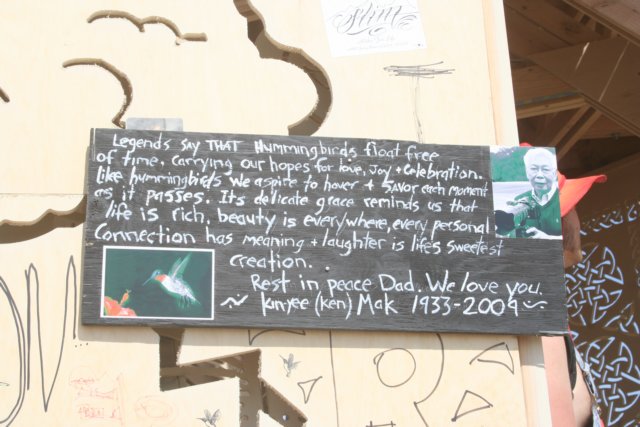 Slim
Legends say THAT Hummingbirds float free
of time, carrying our hopes for love, Joy + celebration.
Like hummingbirds we aspire to hover + SAVOR each moment
as it passes. Its delicate grace reminds us that
life is rich, beauty is everywhere, every personal
Connection has meaning + laughter is life's sweetest
creation.
Rest in peace Dad. We love you.
~ Kin-yee (Ken) Mak 1933-2009 ~